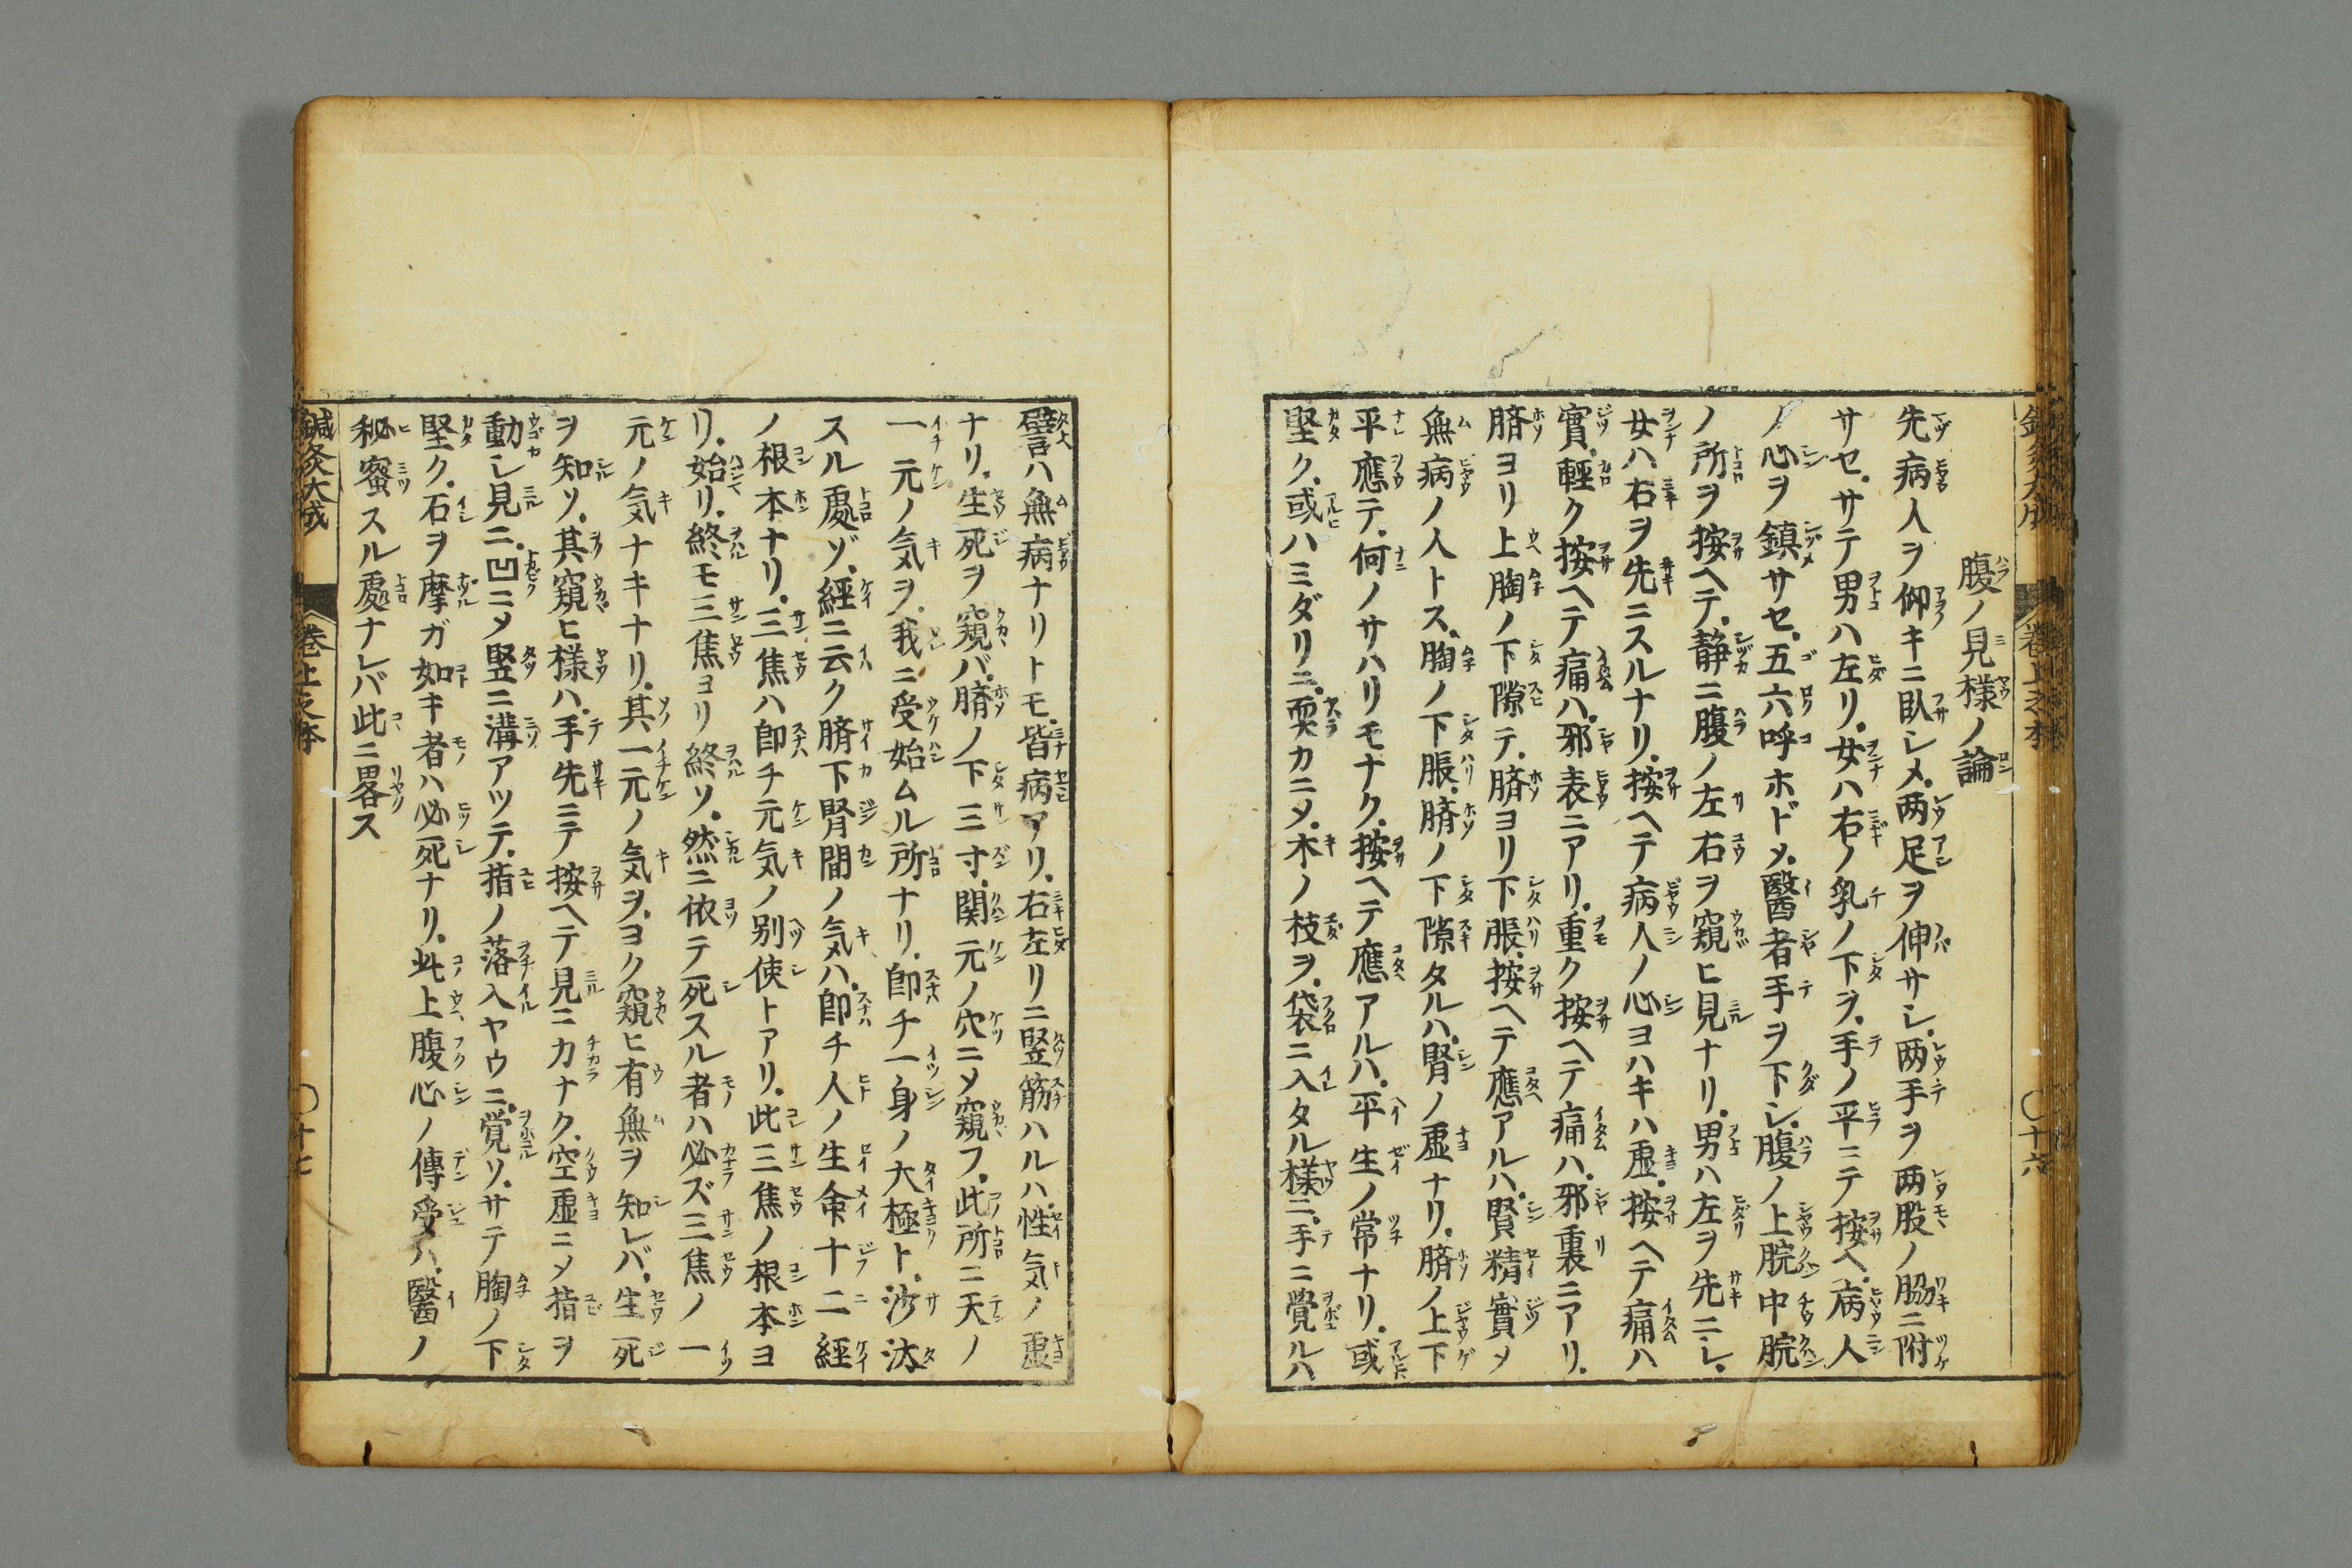 腹ノ見様ノ論
先病人ヲ仰キニ臥シメ.两足ヲ伸サシ.两手ヲ两股ノ脇ニ附
サセ.サテ男ハ左リ.女ハ右ノ乳ノ下ヲ.手ノ平ニテ按ヘ.病人
ノ心ヲ鎮サセ.五六呼ホドメ.醫者手ヲ下シ.腹ノ上脘中脘
ノ所ヲ按ヘテ.静ニ腹ノ左右ヲ窺ヒ見ナリ.男ハ左ヲ先ニシ.
女ハ右ヲ先ニスルナリ.按ヘテ病人ノ心ヨハキハ虚.按ヘテ痛ハ
實.軽ク按ヘテ痛ハ.邪表ニアリ.重ク按ヘテ痛ハ.邪裏ニアリ.
臍ヨリ上胸ノ下隙テ.臍ヨリ下脹.按ヘテ應アルハ.腎精實メ
無病ノ人トス.胸ノ下脹.臍ノ下隙タルハ.腎ノ虚ナリ.臍ノ上下
平應テ.何ノサハリモナク.按ヘテ應アルハ.平生ノ常ナリ.或
堅ク.或ハミダリニ.耎カニメ.木ノ枝ヲ.袋ニ入タル様ニ.手ニ覺ルハ
鍼灸大成 巻上之本 〇十六
譬ハ無病ナリトモ.皆病アリ.右左リニ竪筋ハルハ.性気ノ虚
ナリ.生死ヲ窺バ.臍ノ下三寸.関元ノ穴ニメ窺フ.此所ニ天ノ
一元ノ気ヲ.我ニ受始ムル所ナリ.即チ一身ノ大極ト.沙汰
スル處ゾ.經ニ云ク臍下腎間ノ気ハ.即チ人ノ生命十二經
ノ根本ナリ.三焦ハ即チ元気ノ別使トアリ.此三焦ノ根本ヨ
リ.始リ.終モ三焦ヨリ終ソ.然ニ依テ死スル者ハ必ズ三焦ノ一
元ノ気ナキナリ.其一元ノ気ヲ.ヨク窺ヒ有無ヲ知レバ.生死
ヲ知ソ.其窺ヒ様ハ.手先ニテ按ヘテ見ニカナク.空虚ニメ指ヲ
動シ見ニ.凹ニメ竪ニ溝アツテ.指ノ落入ヤウニ.覚ソ.サテ胸ノ下
堅ク.石ヲ摩ガ如キ者ハ必死ナリ.此上腹心ノ傳受ハ.醫ノ
秘蜜スル處ナレバ此ニ畧ス
鍼灸大成 巻上之本 〇十七